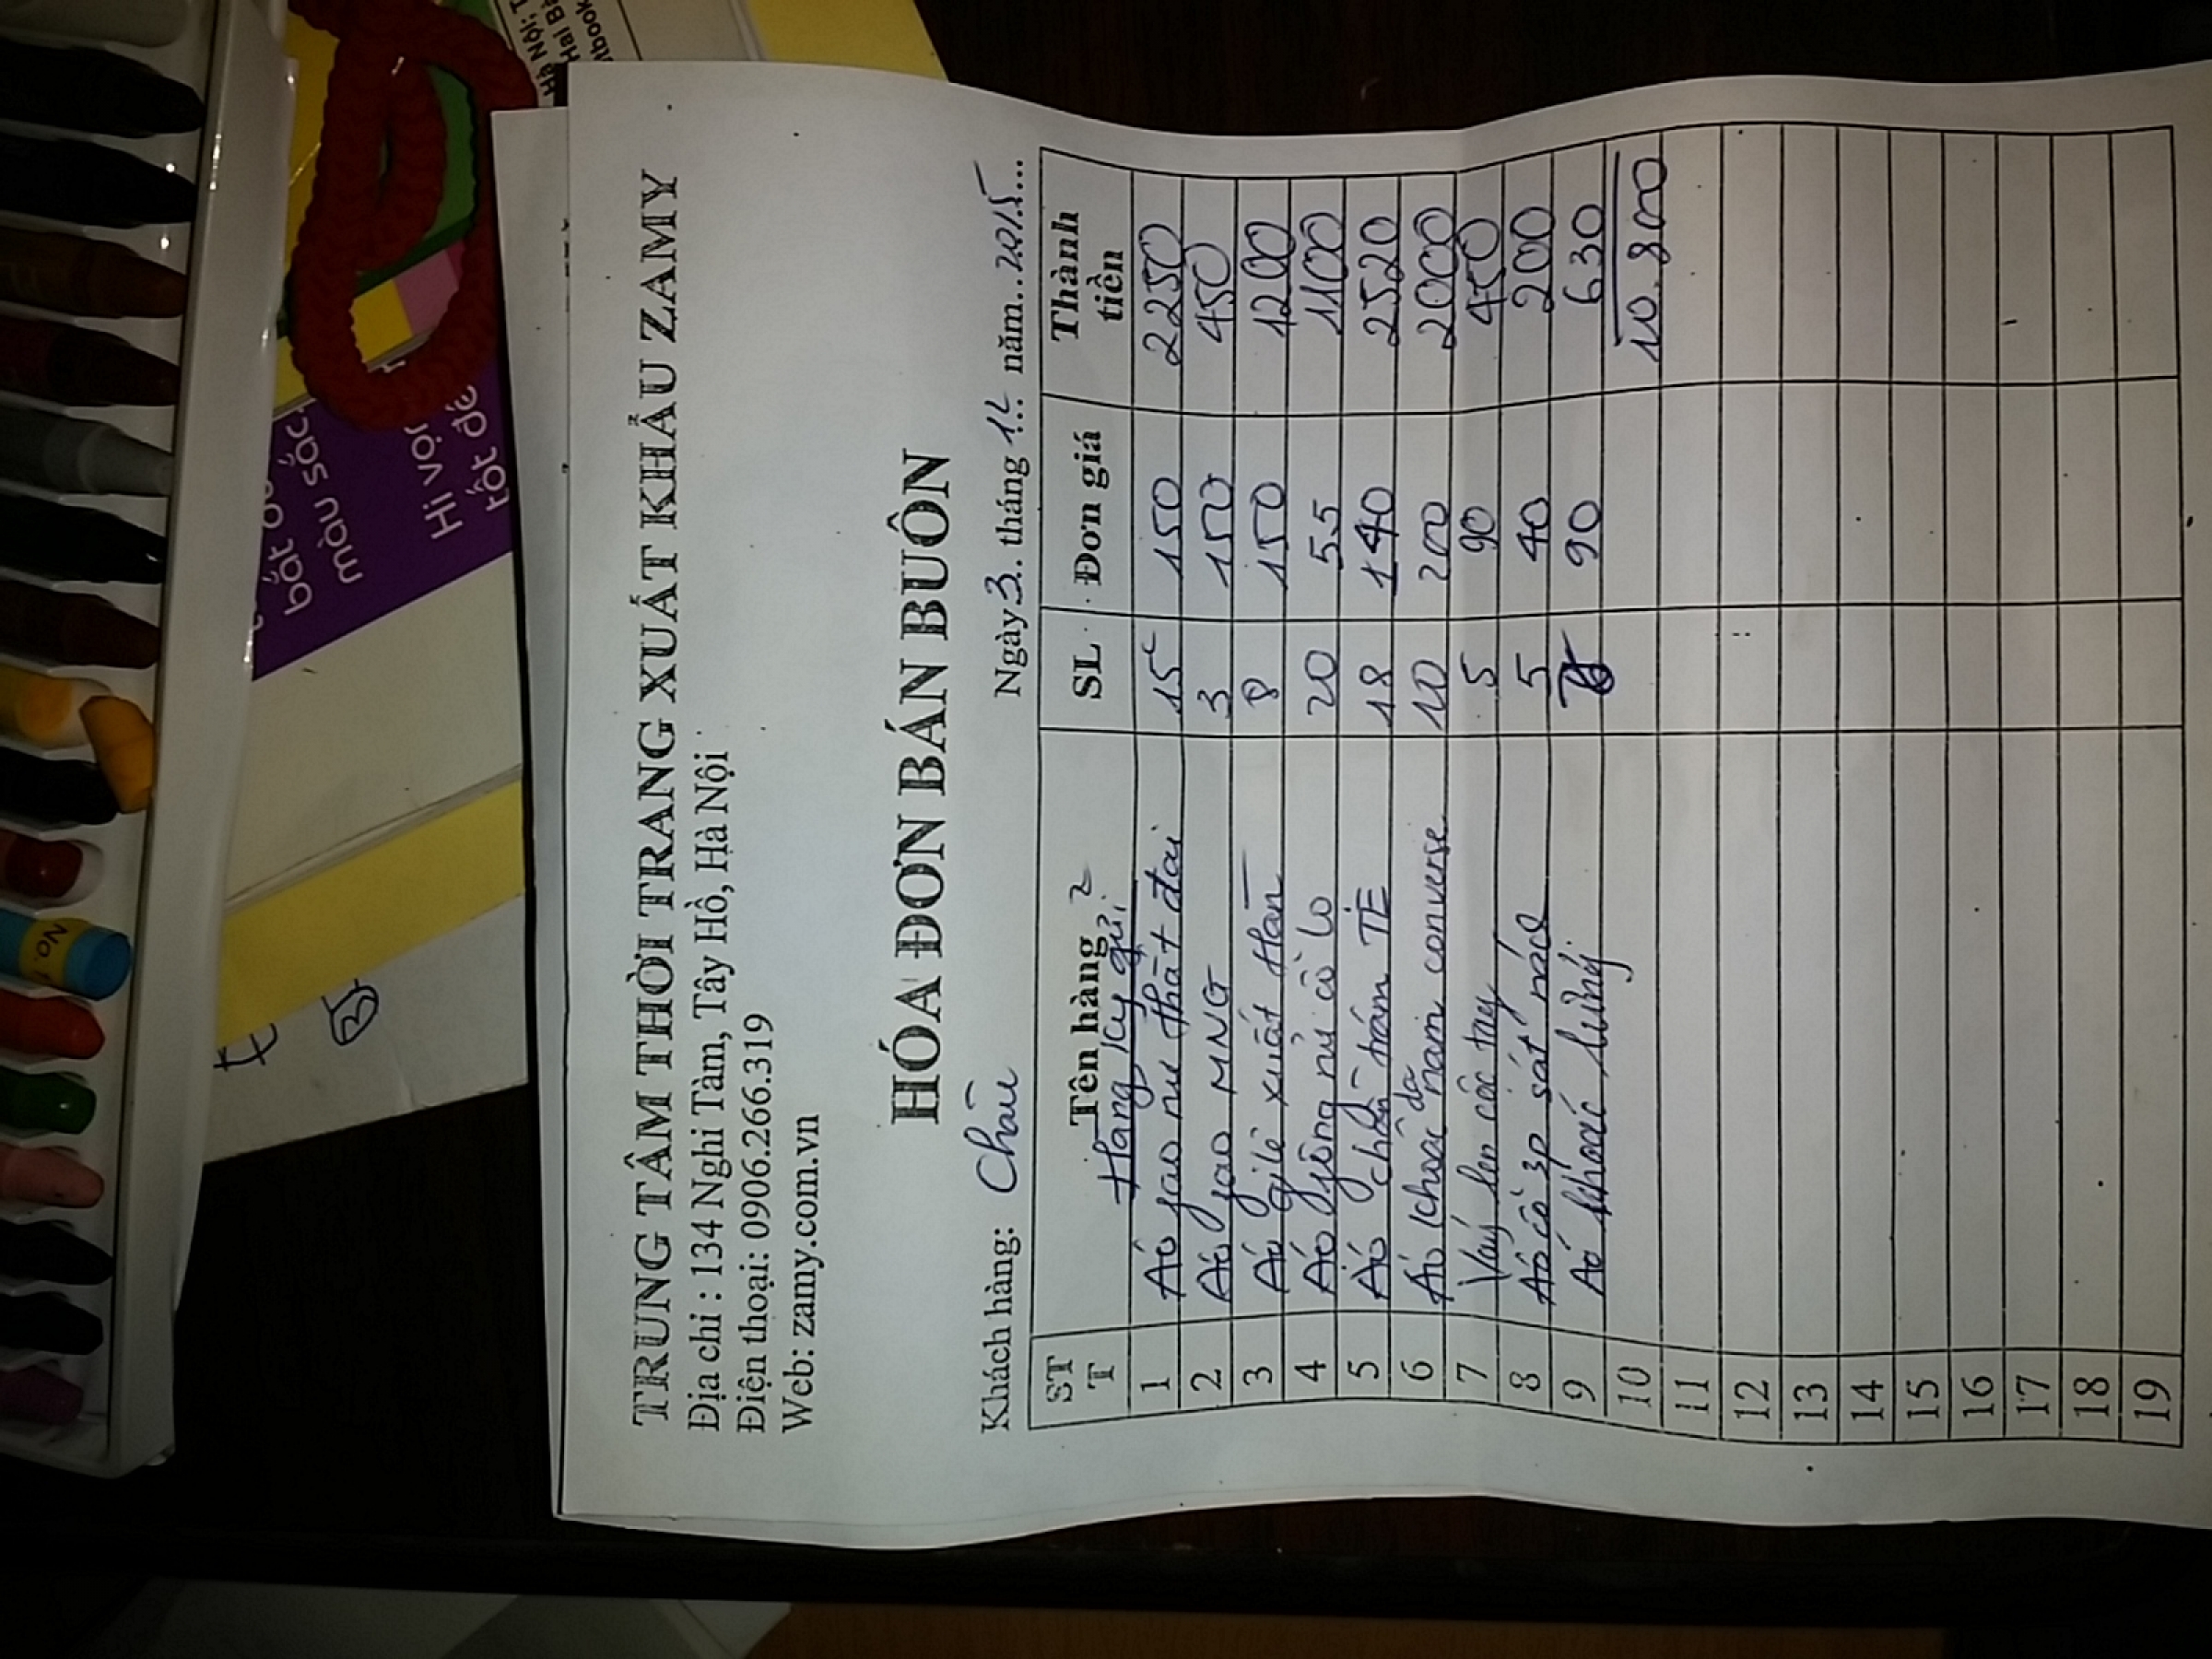 TRUNG TÂM THỜI TRANG XUẤT KHẨU ZAMY
Địa chỉ : 134 Nghi Tàm, Tây Hồ, Hà Nội
Điện thoại: 0906.266.319
Web: zamy.com.vn
HÓA ĐƠN BÁN BUÔN
Khách hàng: Châu
Ngày 3.. tháng 12 năm...2015...
STT Tên hàng SL Đơn giá Thành tiền
Hàng ký gửi 2
1 Áo jao nữ thắt đai 15 150 2250
2 Áo jao MNG 3 150 450
3 Áo gilê xuất Hàn 8 150 1200
4 Áo giông nữ cổ lọ 20 55 1100
5 Áo chần trám TE 18 140 2520
6 Áo khoác da nam converse 10 200 2000
7 Váy len cộc tay 5 90 450
8 Áo cổ 3p sát nách 5 40 200
9 Áo khoác lửng 7 90 630
10 10.800
11
12
13
14
15
16
17
18
19
màu sắc
Hi vọn
rốt để
Hà Nội: T
Hai Bà
No.1